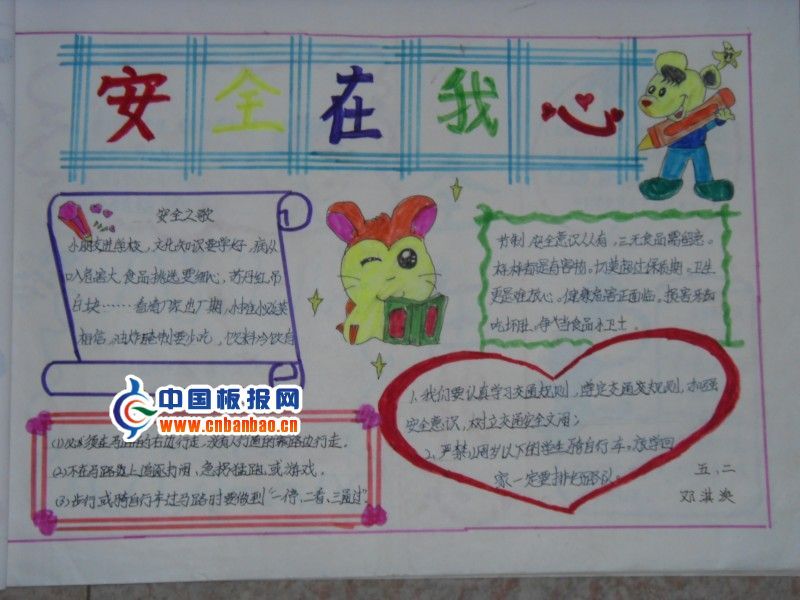 安全在我心
安全之歌
小朋友进学校,文化知识要学好,病从
口入危害大,食品挑选要细心,
看清厂家
相信,油炸腌制要少吃,饮料冷饮自
节制,安全意识人人有,三无食品需留意。
样样都是有害物。切莫超过保质期。卫生
更是难放心。健康危害正面临。损害牙齿
吃坏肚。争当食品小卫士。
中国板报网
www.cnbanbao.cn
(1)必须在马路的右边行走,没有人行道的靠路边行走。
(2)不在马路上追逐打闹,急奔猛跑,或游戏。
(3)步行或骑自行车过马路时要做到“一停、二看、三通过”
1、我们要认真学习交通规则,遵定交通规则,加强
安全意识,树立交通安全文明;
2、严禁12周岁以下的学生骑自行车。放学回
家一定要排好路队。
五、二
邓淇